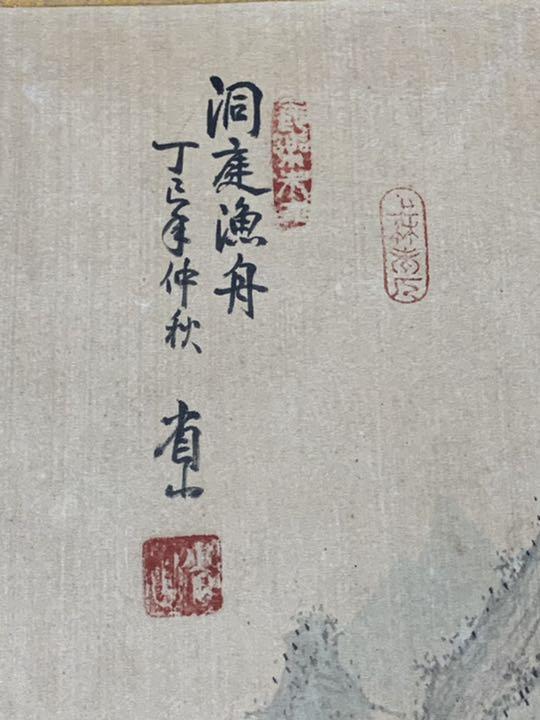 洞庭漁舟
丁巳年仲秋
省山